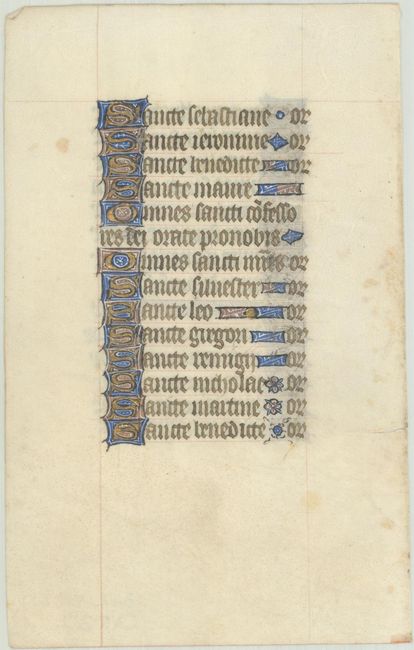 Sancte sebastiane or
Sancte ieronime or
Sancte benedicte or
Sancte maure
Omnes sancti cōfesso
res dei orate pronobis
Omnes sancti or
Sancte siluester or
Sancte leo or
Sancte gregori or
Sancte remigi or
Sancte nicholae or
Sancte martine or
Sancte benedicte or